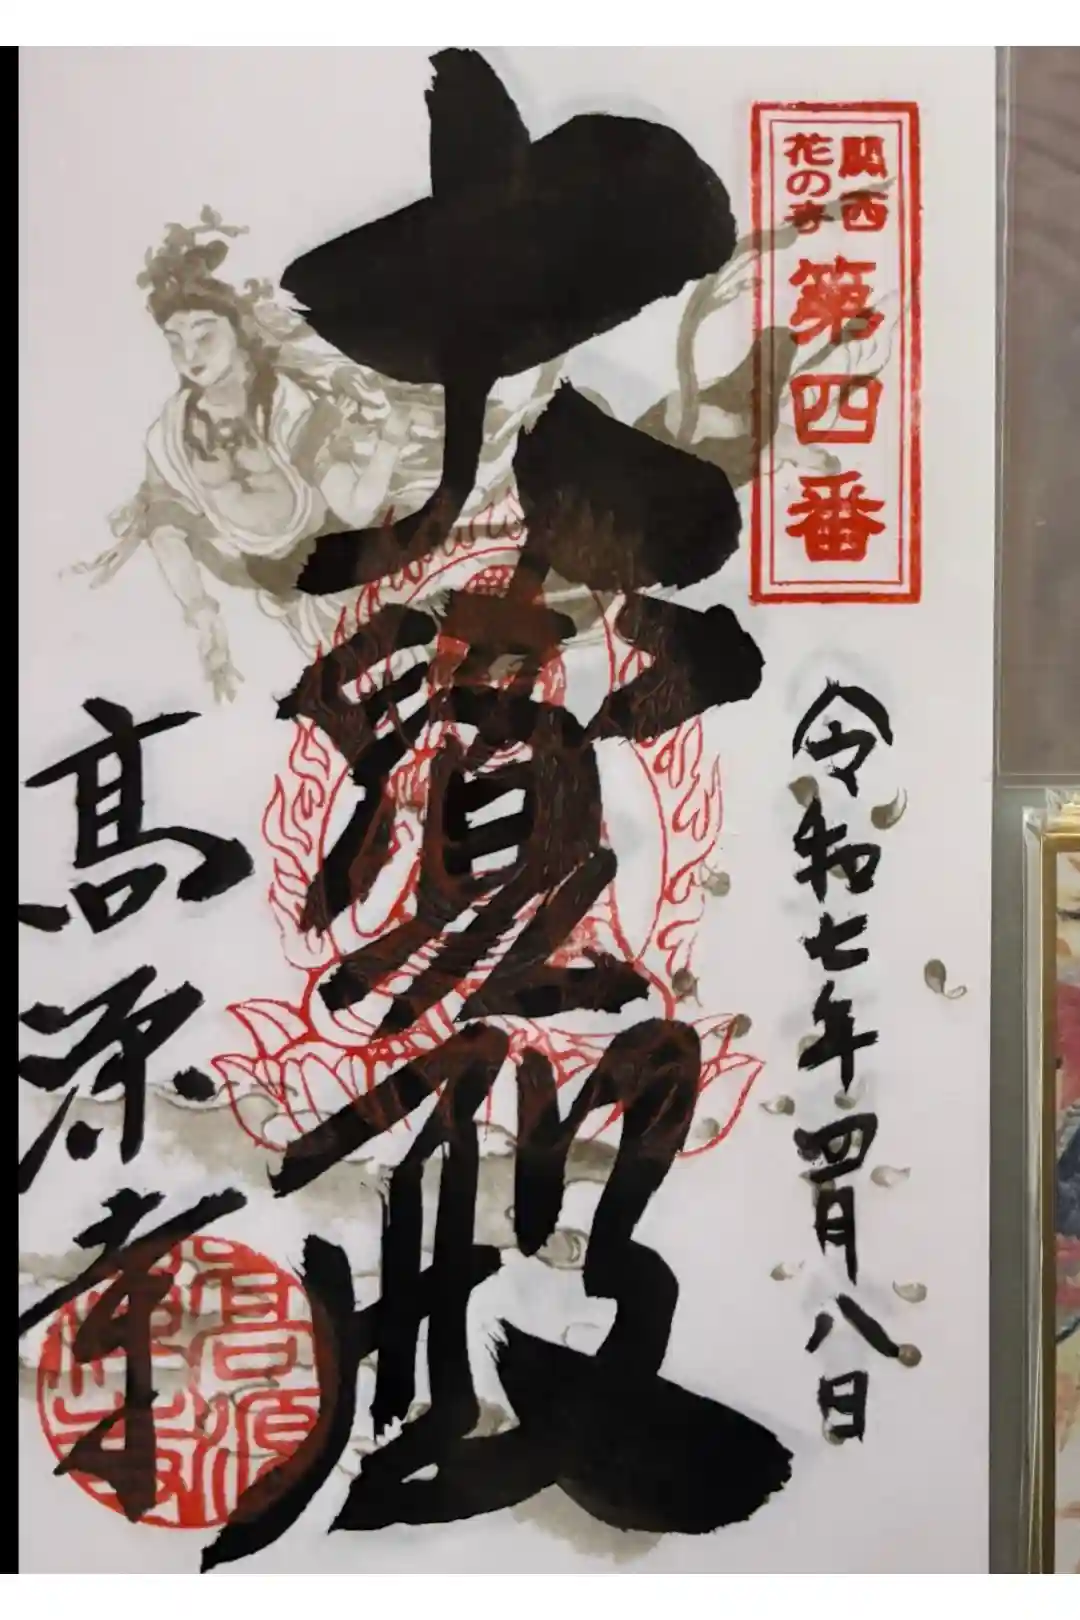 関西
花の寺
第四番
令和七年四月八日
大寶殿
高源寺